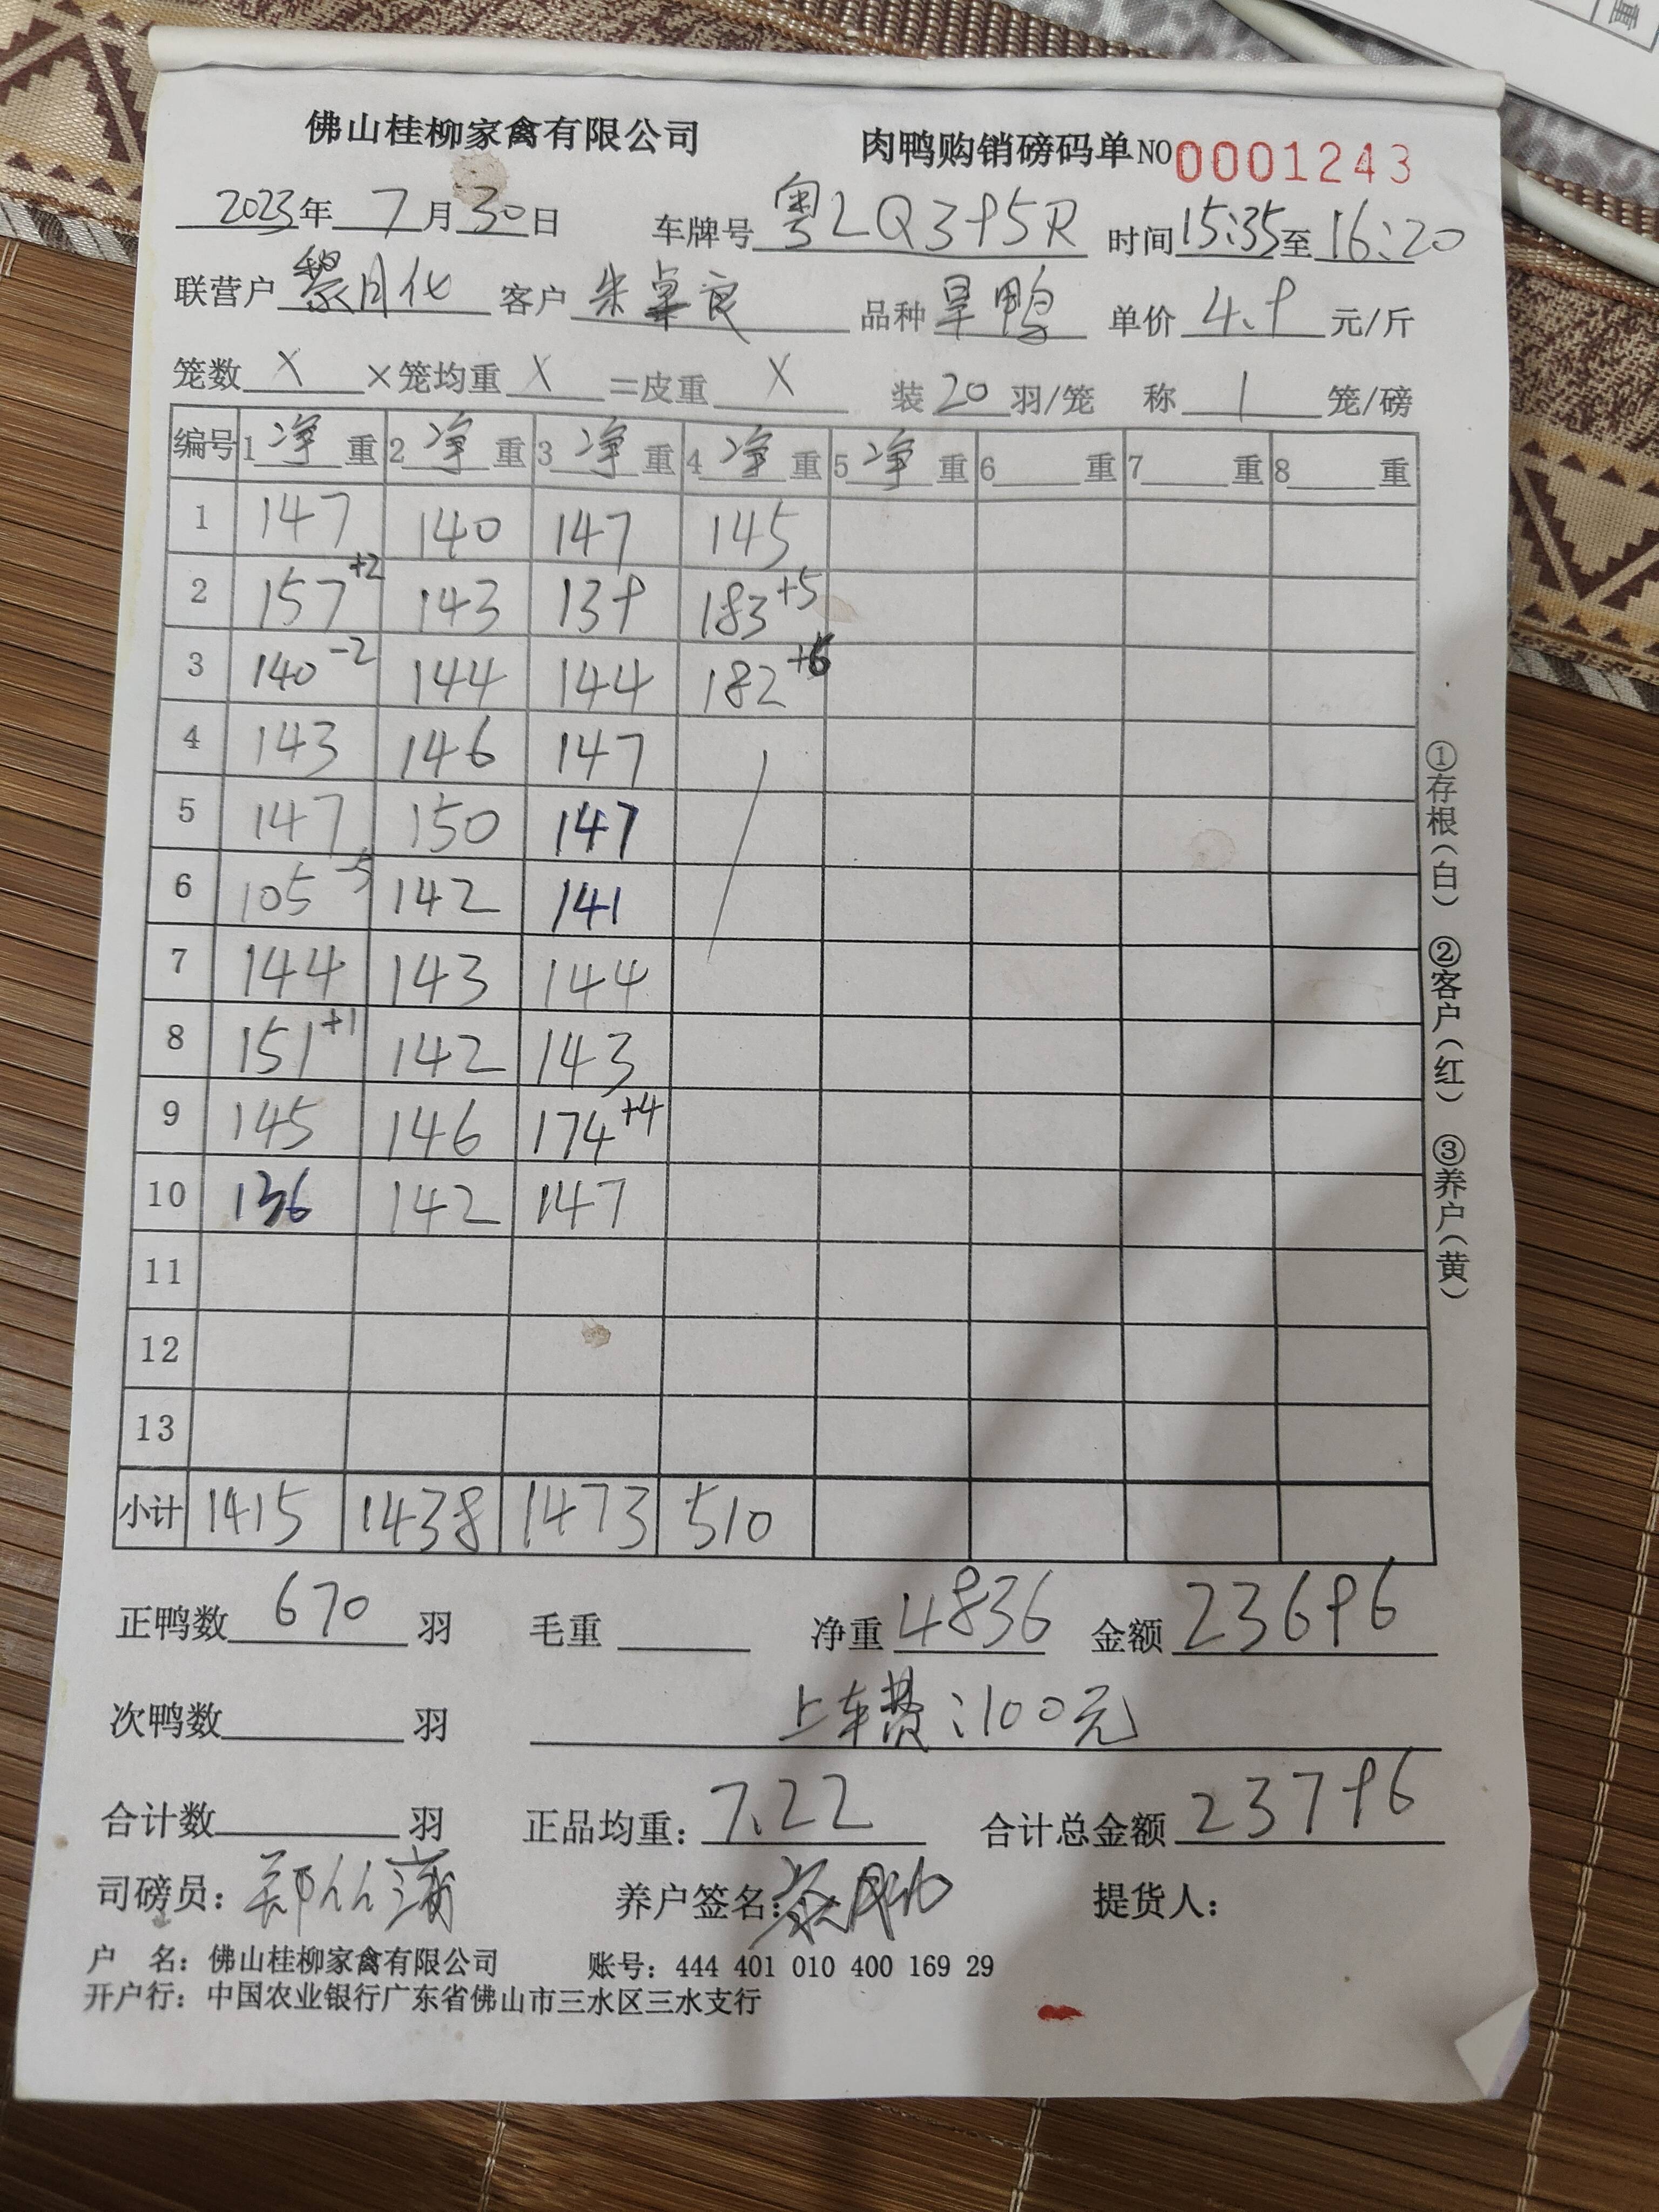 佛山桂柳家禽有限公司 肉鸭购销磅码单NO0001243
2023年 7月30日 车牌号 粤LQ395R 时间15:35至16:20
联营户 黎月化 客户 朱卓良 品种 旱鸭 单价 4.9 元/斤
笼数 X ×笼均重 X =皮重 X 装 20 羽/笼 称 1 笼/磅
编号 1 净 重 2 净 重 3 净 重 4 净 重 5 净 重 6 重 7 重 8 重
1 147 140 147 145
2 157+2 143 139 183+5
3 140-2 144 144 182+6
4 143 146 147
5 147 150 147
6 105-5 142 141
7 144 143 144
8 151+1 142 143
9 145 146 174+4
10 136 142 147
11
12
13
小计 1415 1438 1473 510
正鸭数 670 羽 毛重 净重 4836 金额 23696
次鸭数 羽 上车费:100元
合计数 羽 正品均重: 7.22 合计总金额 23796
司磅员: 郑 养户签名: 提货人:
户 名: 佛山桂柳家禽有限公司 账号: 444 401 010 400 169 29
开户行: 中国农业银行广东省佛山市三水区三水支行
①存根(白) ②客户(红) ③养户(黄)
重